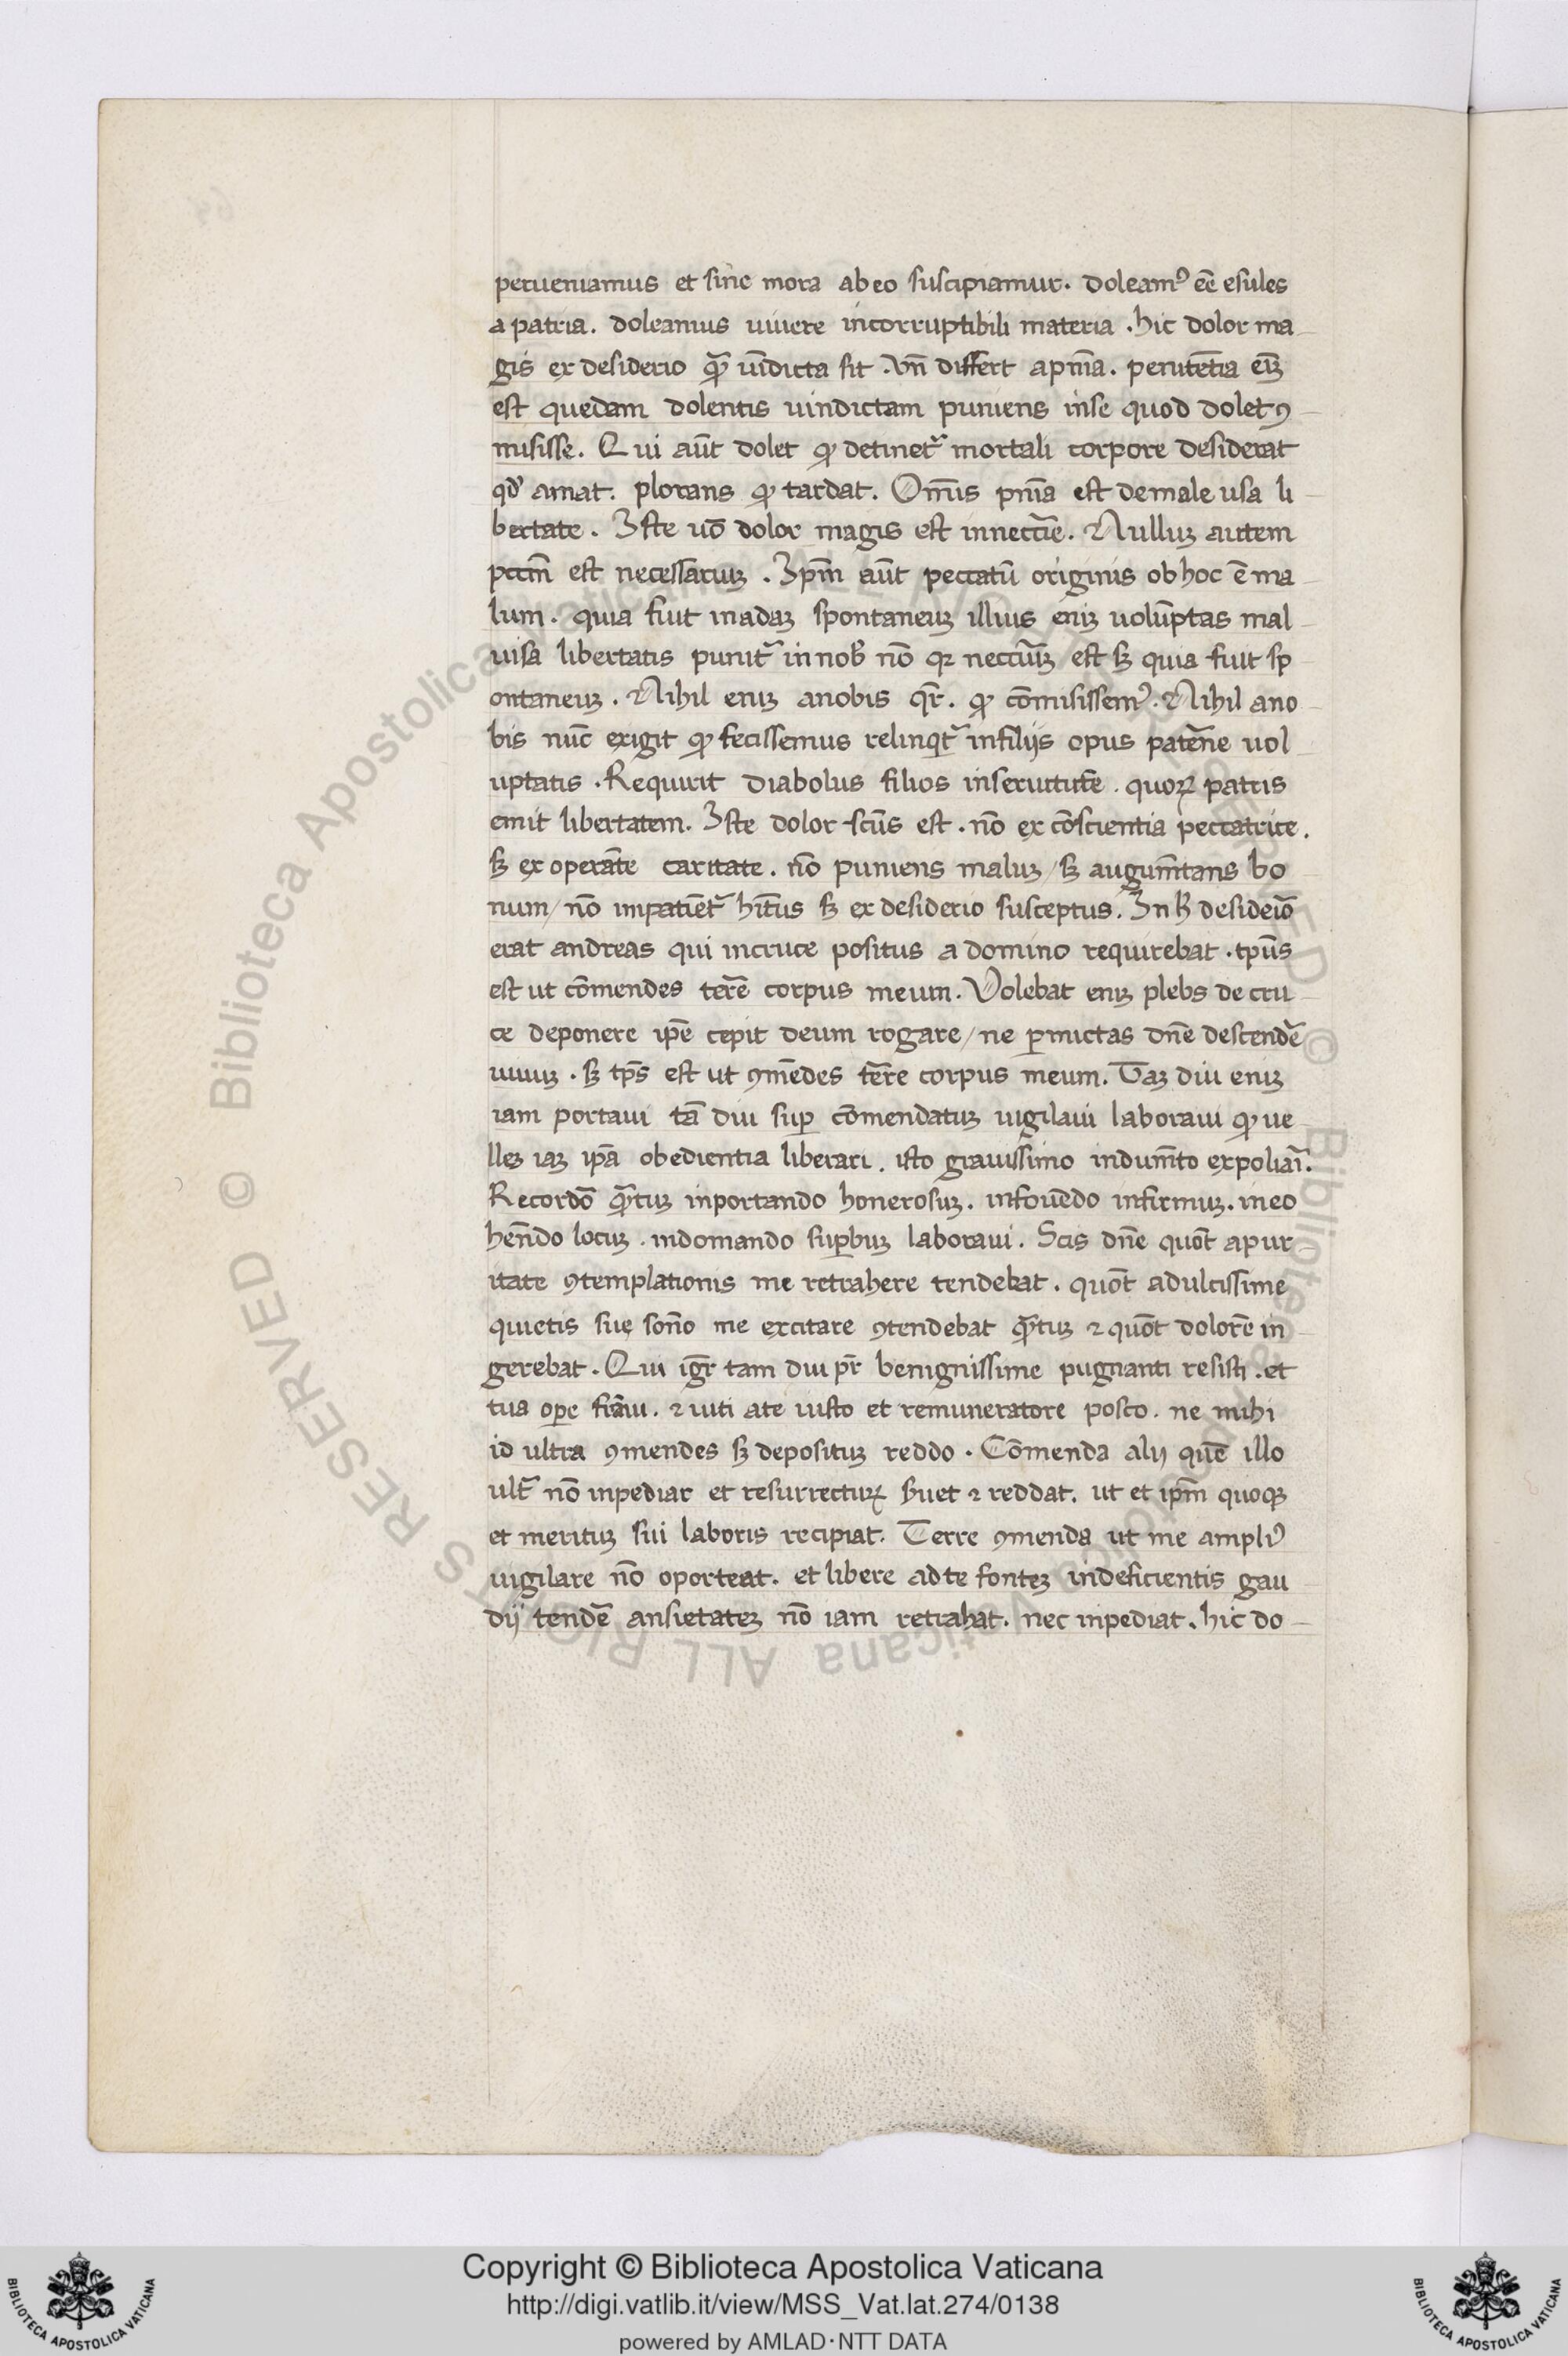 perueniamus et sine mora ab eo suscipiamur. doleamꝰ eē esules
a patria. doleamus uiuere incorruptibili materia. hic dolor ma
gis ex desiderio qͣ̄ uīdicta sit. vn̄ differt a pn̄ia. penitētia eīꝫ
est quedam dolentis uindictam puniens inse quod dolet ꝯ
misisse. Qui aūt dolet ꝙ detinetᷣ mortali corpore desiderat
qđ amat. plorans ꝙ tardat. Om̄is pn̄ia est de male usa li
bertate. Iste uō dolor magis est in neccīe. Nulluꝫ autem
pccm̄ est necessariuꝫ. Ipm̄ aūt peccatū originis ob hoc ē ma
lum. quia fuit in adaꝫ spontaneuꝫ illius eniꝫ uolūptas mal
uisa libertatis punitᷣ in nob̄ nō qꝛ neccīuꝫ est sꝫ quia fuit sp
ontaneuꝫ. Nihil eniꝫ a nobis qr̄. ꝙ cōmisissemꝰ. Nihil a no
bis nūc exigit ꝙ fecissemus relinqtᷣ in filijs opus patn̄e uol
uptatis. Requirit diabolus filios in seruitutē. quoꝝ patris
emit libertatem. Iste dolor scūs est. nō ex cōscientia peccatrice.
sꝫ ex operāte caritate. nō puniens maluꝫ / sꝫ augum̄tans bo
num / nō impatiēt᷑ hītus sꝫ ex desiderio susceptus. In h̄ desideīo
erat andreas qui in cruce positus a domino requirebat. tp̄us
est ut cōmendes terē corpus meum. Volebat eniꝫ plebs de cru
ce deponere ip̄e cepit deum rogare / ne ꝑmictas dn̄e descendē
uiuuꝫ. sꝫ tp̄s est ut ꝯmēdes tēre corpus meum. Taꝫ diu eniꝫ
iam portaui tā diu suꝑ cōmendatuꝫ uigilaui laboraui ꝙ ue
lleꝫ iaꝫ ip̄a obedientia liberari. isto grauissimo indum̄to expoliaī.
Recordō qͣ̄tuꝫ in portando honerosuꝫ. in fouēdo infirmuꝫ. in eo
hen̄do locuꝫ. in domando suꝑbuꝫ laboraui. Scis dn̄e quōt a pur
itate ꝯtemplationis me retrahere tendebat. quōt a dulcissime
quietis sue soñō me excitare ꝯtendebat qͣ̄tuꝫ ⁊ quōt dolorē in
gerebat. Qui igr̄ tam diu pr̄ benignissime pugnanti resisti. et
tua oꝑe fīaui. ⁊ iuti a te iusto et remuneratore posco. ne mihi
id ultra ꝯmendes sꝫ depositum reddo. Cōmenda alij quē illo
ultᷣ nō inpediar et resurrectuꝝ s̄uet ⁊ reddat. ut et ipm̄ quoqꝫ
et merituꝫ sui laboris recipiat. Terre ꝯmenda ut me ampliꝰ
uigilare nō oporteat. et libere ad te fonteꝫ indeficientis gau
dij tendē ansietateꝫ nō iam retrahat. nec inpediat. hic do
Copyright © Biblioteca Apostolica Vaticana
http://digi.vatlib.it/view/MSS_Vat.lat.274/0138
powered by AMLAD·NTT DATA
BIBLIOTECA APOSTOLICA VATICANA
BIBLIOTECA APOSTOLICA VATICANA